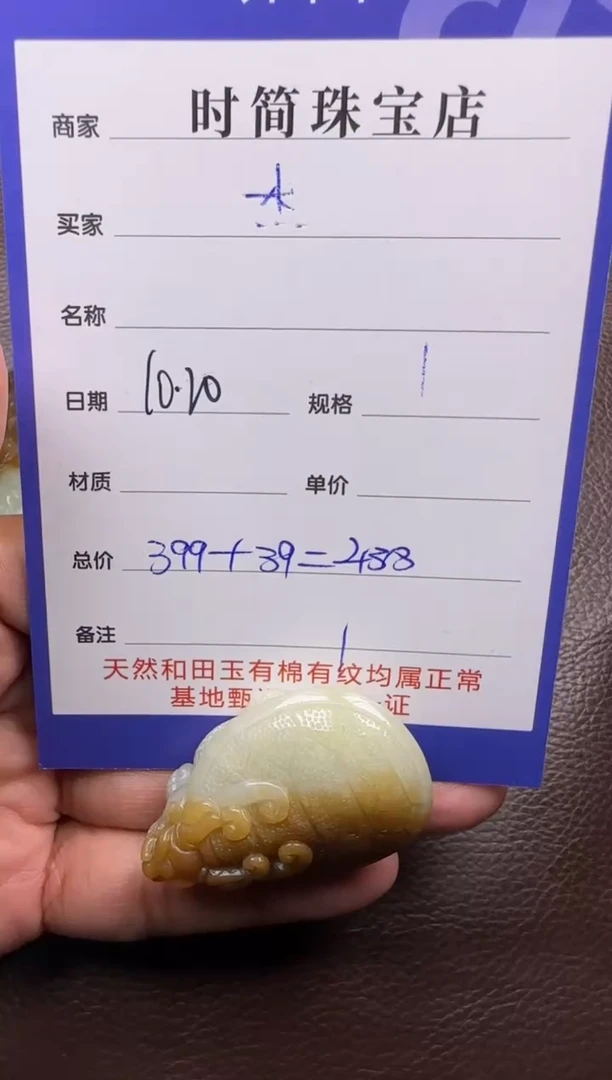 商家 时简珠宝店
买家
名称
日期 10.20 规格
材质 单价
总价 399+39=438
备注
天然和田玉有棉有纹均属正常
基地甄 证